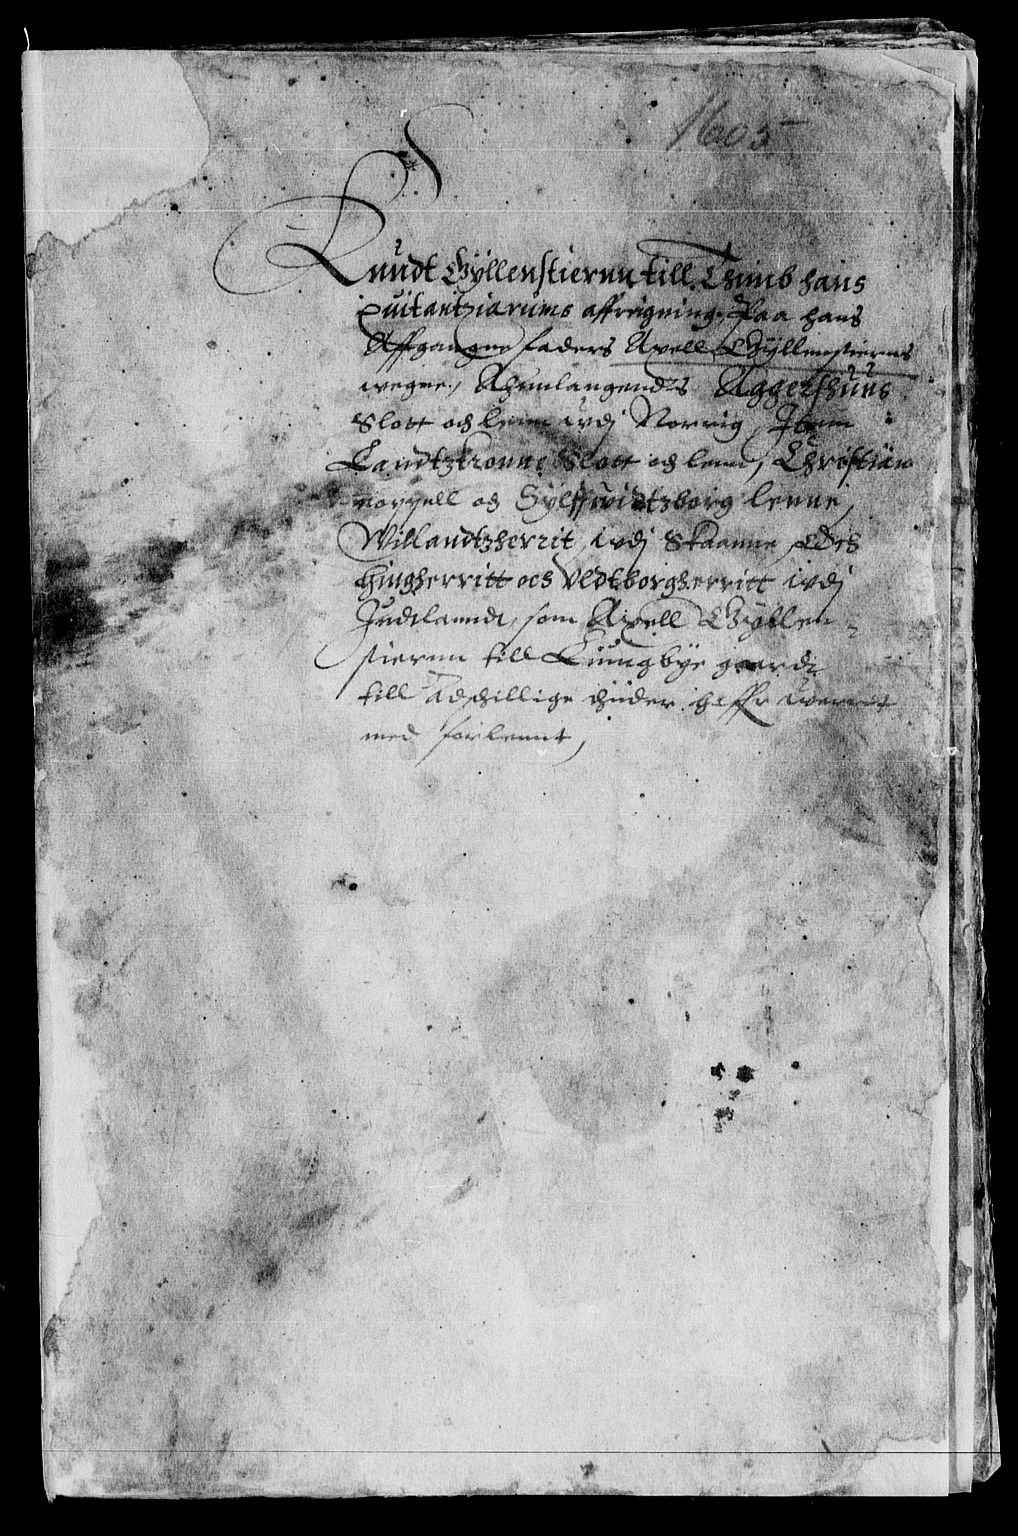 1605
Knudt Gyllenstiernn till Thimb hans
quitantziarums affreigning, Paa hans
Affgangne faders Axell Gyllenstierns
wegne, Annlangendis Aggershuus
Slott och lenn udj Norrig, Item
Landtzkronne Slott och lenn, Christian
nopell och Syllfwidtzborg lenne,
Willandtzherrit, udj Skaanne,
hingherritt och Uldborgherritt udj
Judtlanndt, som Axell Gyllen-
stiernn till Liungbye gaardt
till adschillige thider haffr werret
med forlennt,